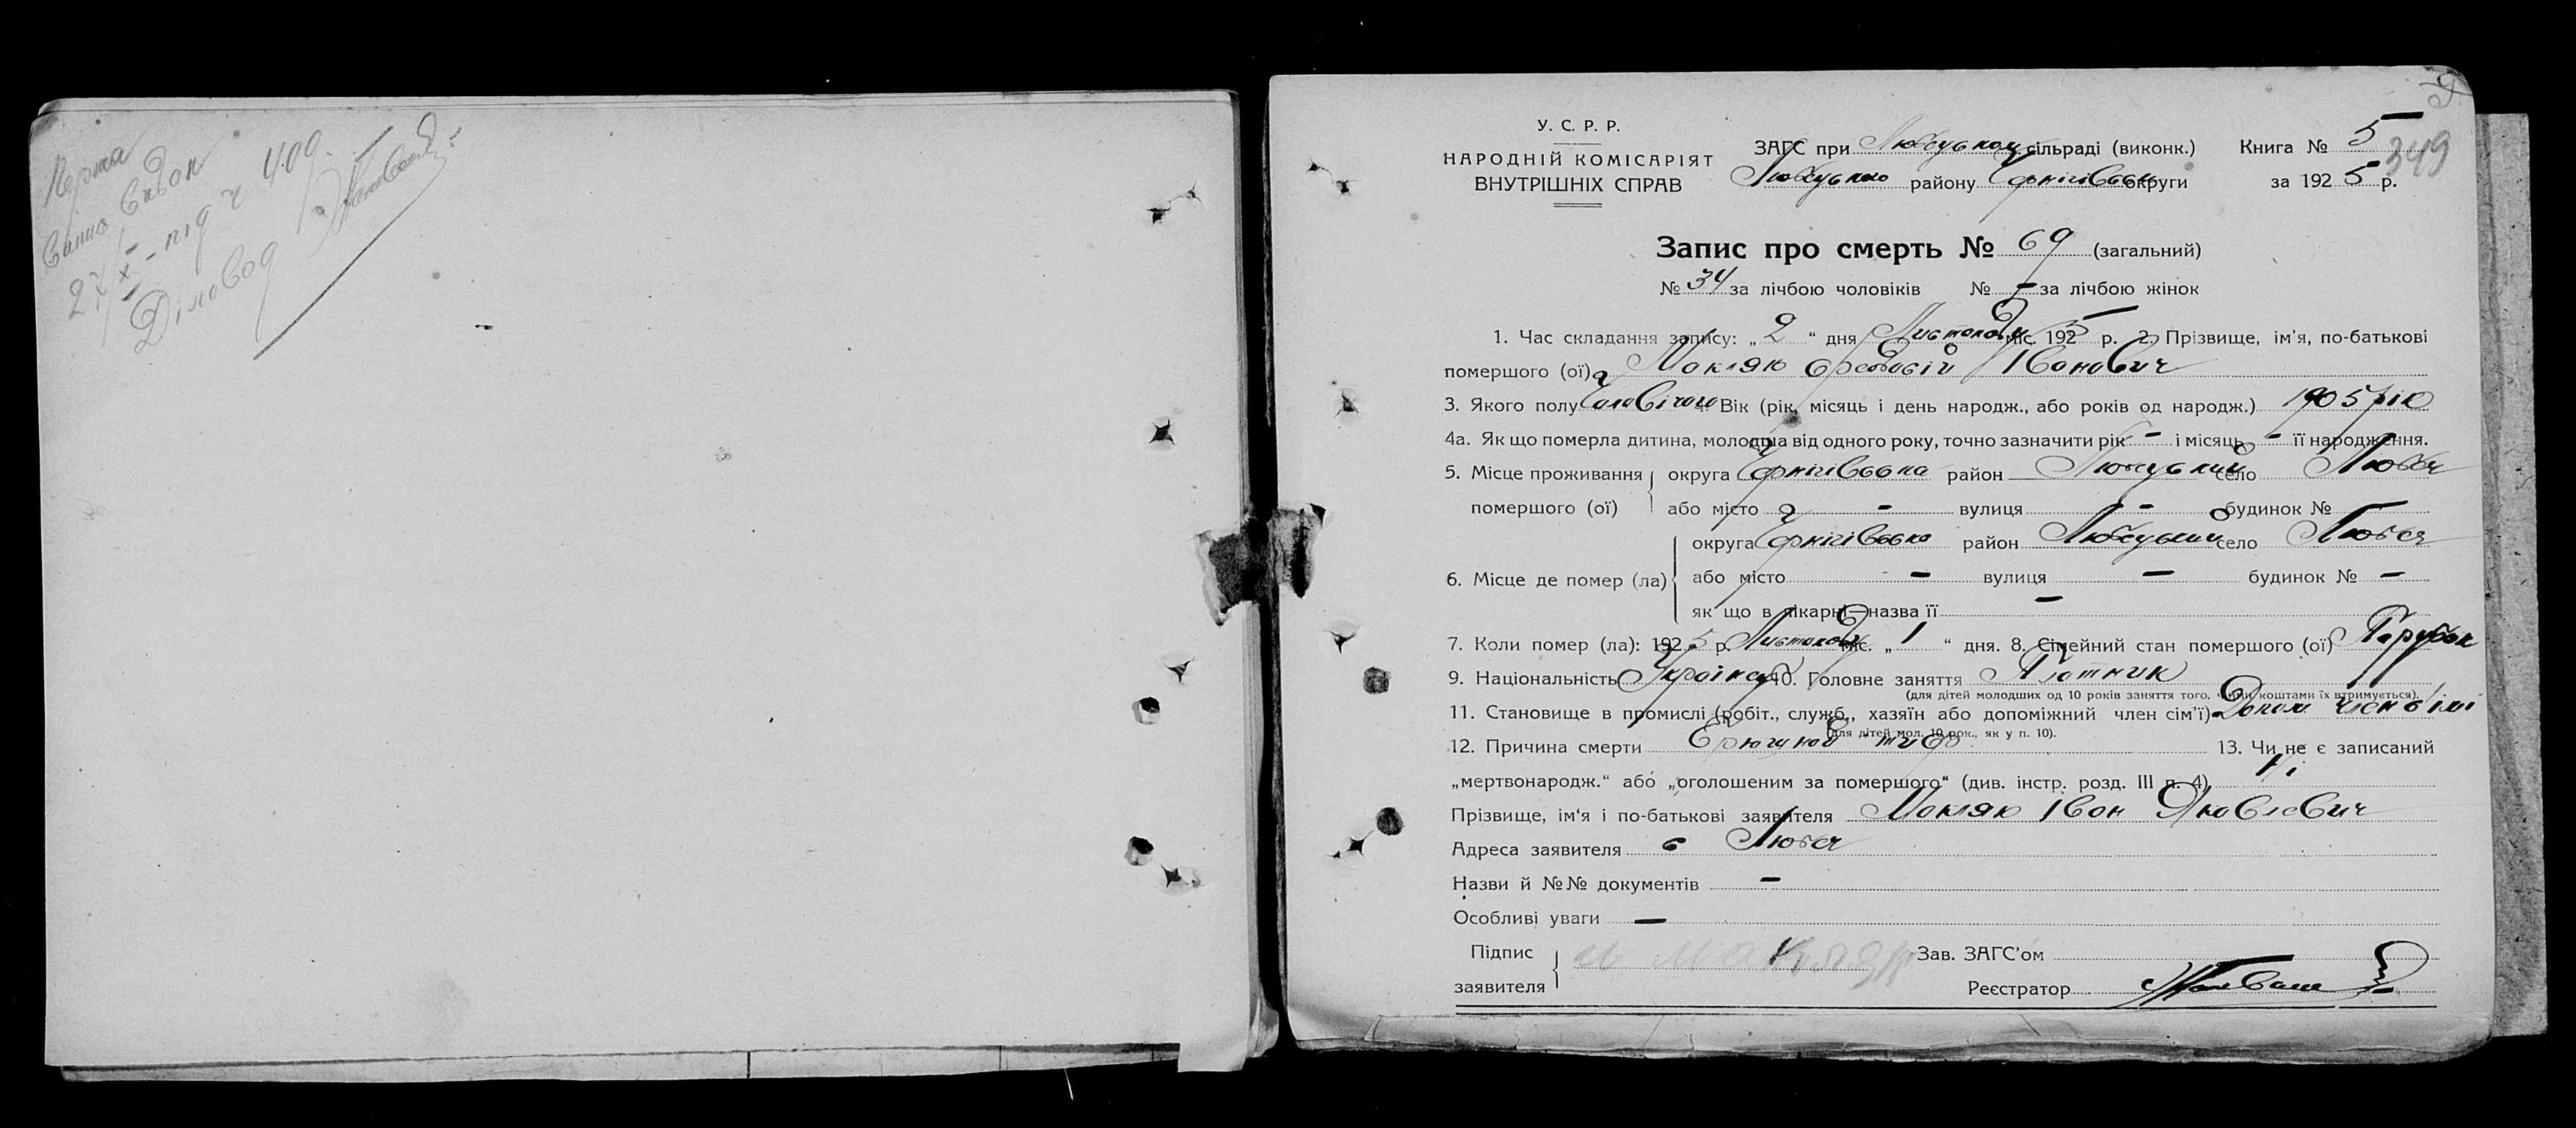 Перша
Випис Видан
27/X - під ч 409.
Діловод
У. С. Р. Р.
НАРОДНІЙ КОМІСАРІЯТ
ВНУТРІШНІХ СПРАВ
ЗАГС при Любецьком сільраді (виконк.) Книга № 5
349
Любецького району Чернігівськ округи за 1925 р.
Запис про смерть № 69 (загальний)
№ 34 за лічбою чоловіків № - за лічбою жінок
1. Час складання запису: „ 2 “ дня Листопаду міс. 1925 р. 2. Прізвище, ім’я, по-батькові
помершого (ої) Макляк Федосій Іванович
3. Якого полу Чоловічого 4. Вік (рік, місяць і день народж., або років од народж.) 1905 рік
4а. Як що померла дитина, молодша від одного року, точно зазначити рік - і місяць - її народження.
5. Місце проживання округа Чернігівська район Любецький село Любеч
помершого (ої) або місто - вулиця - будинок № -
округа Чернігівська район Любецький село Любеч
6. Місце де помер (ла) або місто - вулиця - будинок № -
як що в лікарні—назва її -
7. Коли помер (ла): 1925 р. Листопаду міс. „ 1 “ дня. 8. Сімейний стан помершого (ої) Парубок
9. Національність Українец 10. Головне заняття Плотник
(для дітей молодших од 10 років заняття того, чиїми коштами їх втримується).
11. Становище в промислі (робіт., служб., хазяїн або допоміжний член сім’ї) Допом. член сім’ї
(для дітей мол. 10 рок., як у п. 10).
12. Причина смерти Брюшной тиф 13. Чи не є записаний
„мертвонародж.“ або „оголошеним за помершого“ (див. інстр. розд. III п. 4) Ні
Прізвище, ім‘я і по-батькові заявителя Макляк Іван Яковлевич
Адреса заявителя с Любеч
Назви й №№ документів -
Особливі уваги -
Підпис
заявителя И Макляк
Зав. ЗАГС’ом
Реєстратор